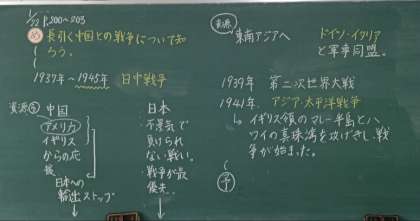 1/22 P.200〜203
め 長引く中国との戦争について知
ろう。
1937年〜1945年 日中戦争
資源多 中国
アメリカ
イギリス
からの応
援
日本への
輸出ストップ
日本
・不景気で
負けられ
ない戦い。
・戦争が最
優先。
資源
東南アジアへ
ドイツ・イタリア
と軍事同盟。
1939年 第二次世界大戦
1941年 アジア・太平洋戦争
↳ イギリス領のマレー半島とハ
ワイの真珠湾を攻げきし、戦
争が始まった。
予